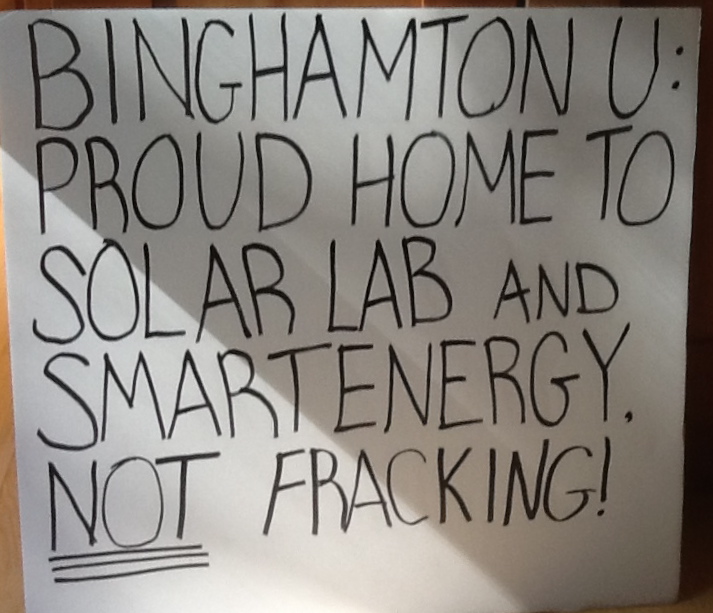 BINGHAMTON U:
PROUD HOME TO
SOLAR LAB AND
SMARTENERGY.
NOT FRACKING!